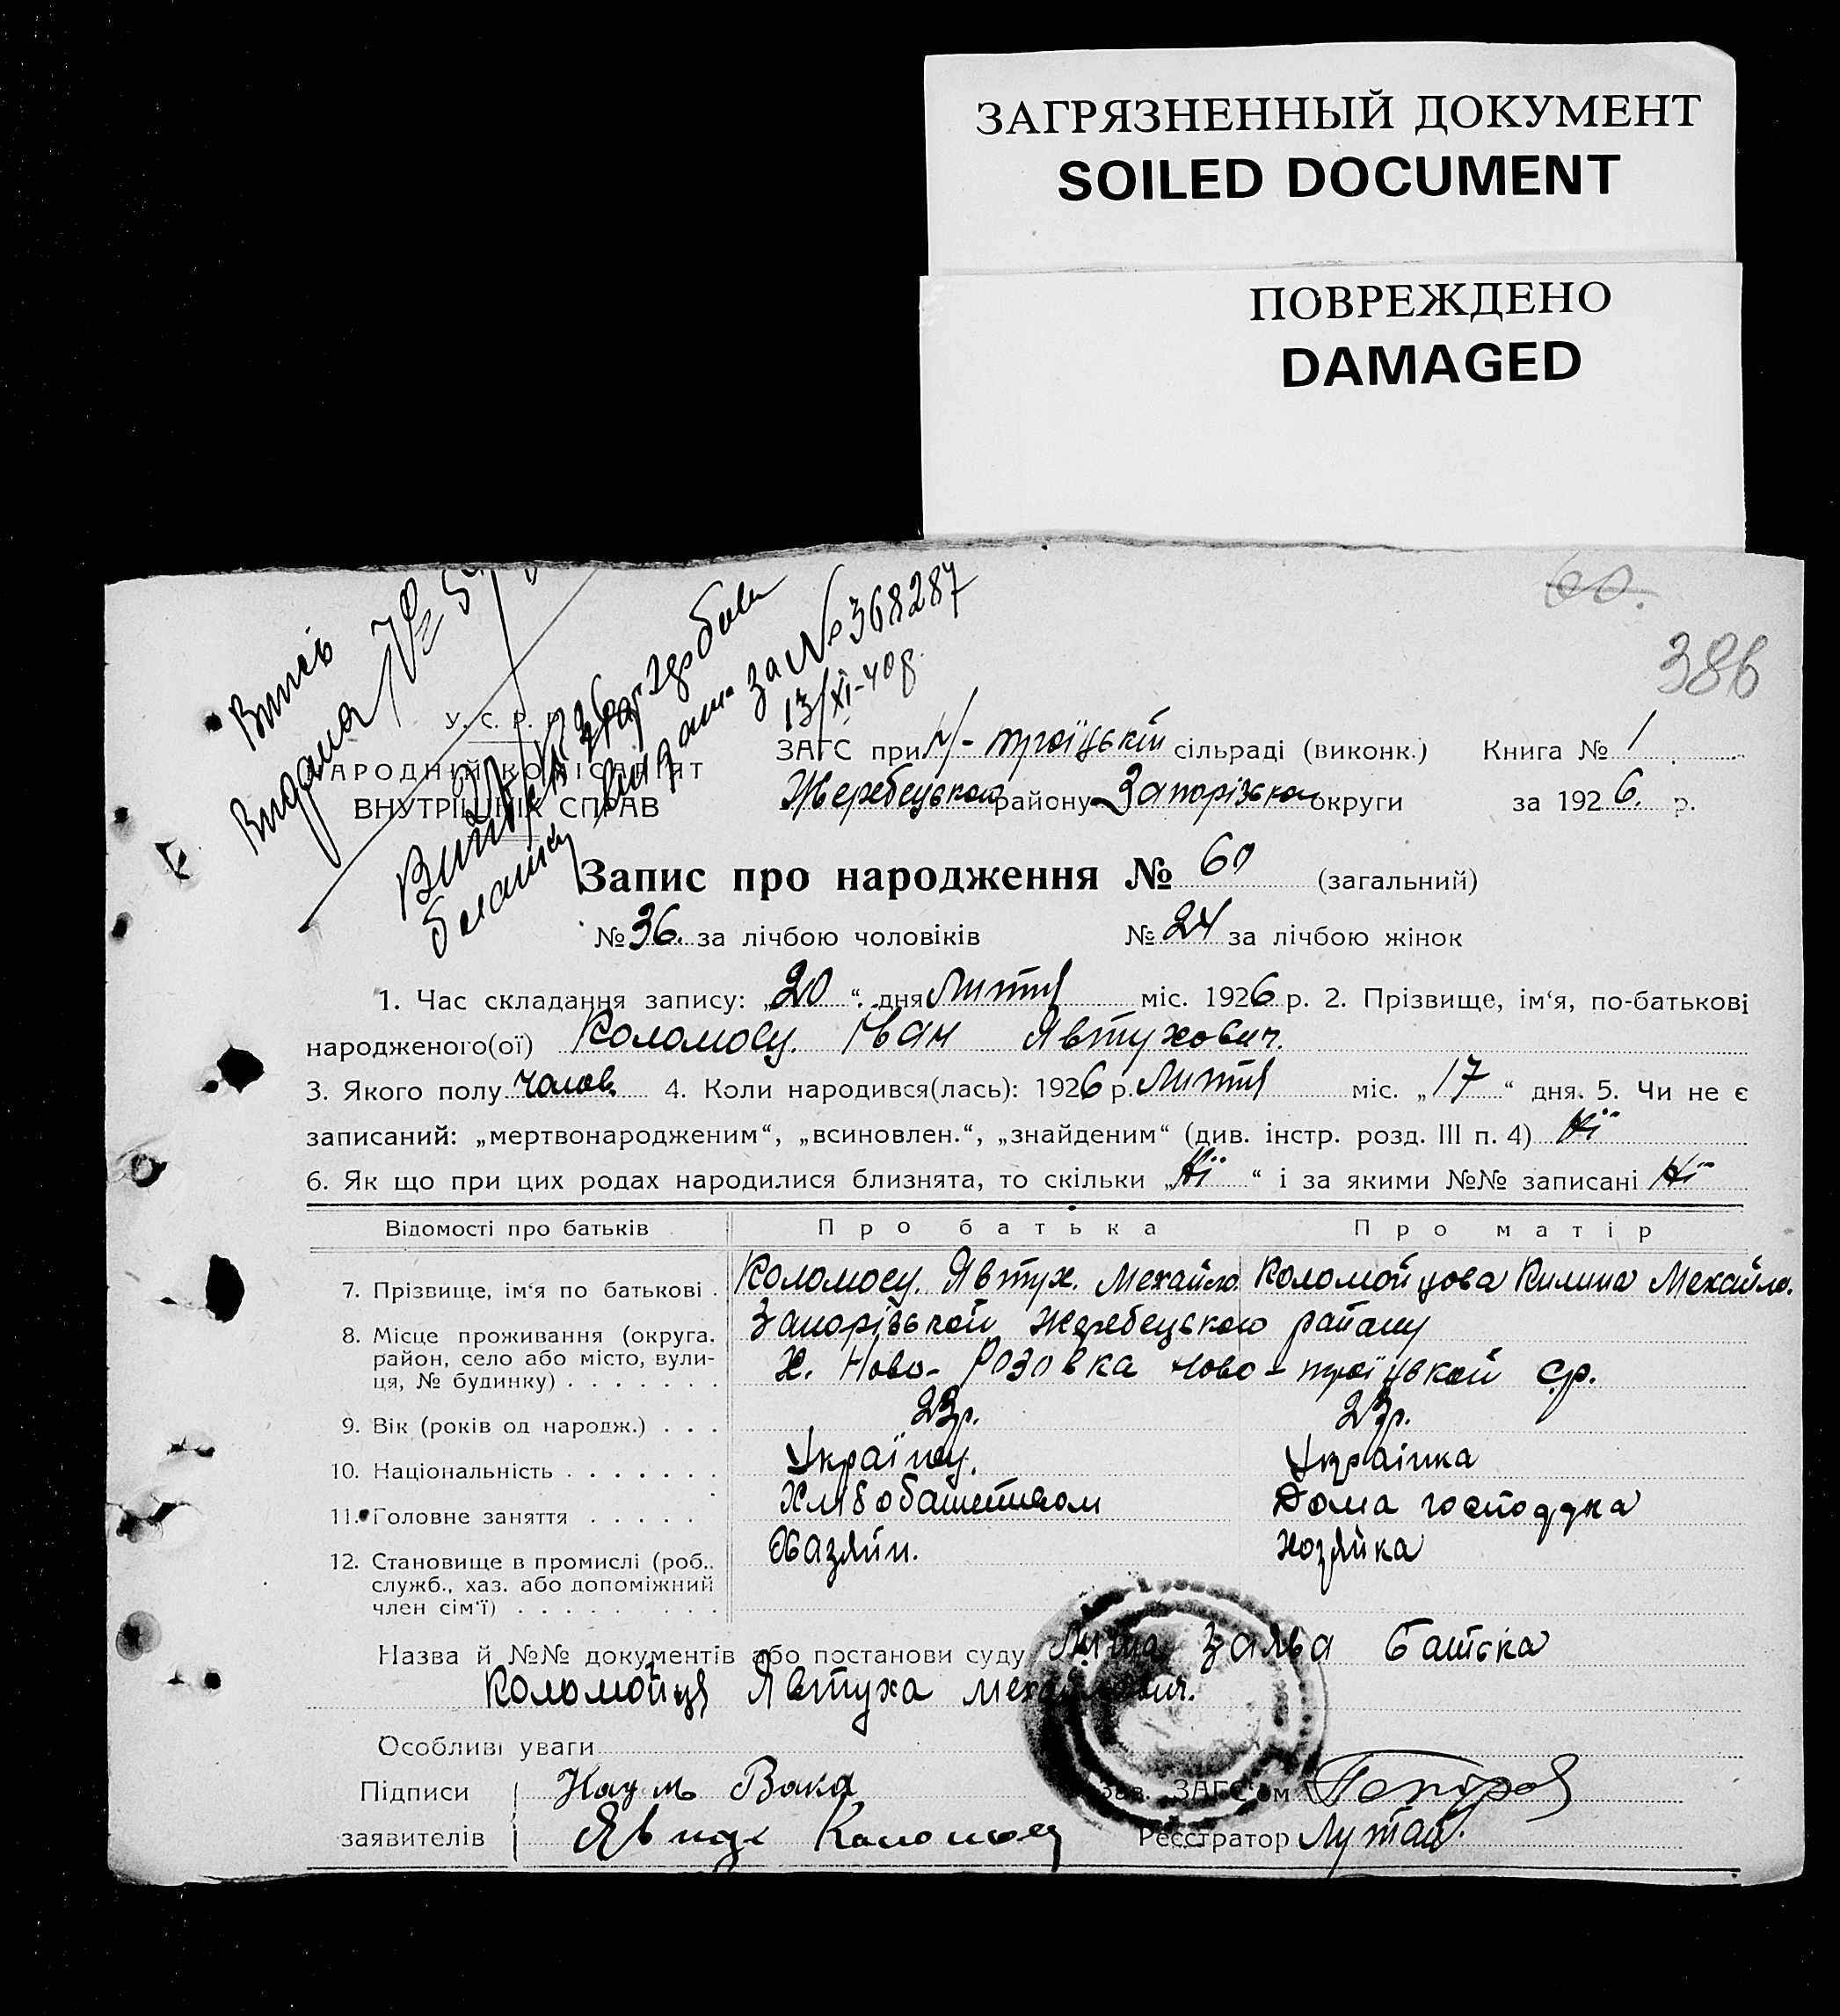 ЗАГРЯЗНЕННЫЙ ДОКУМЕНТ
SOILED DOCUMENT
ПОВРЕЖДЕНО
DAMAGED
60.
386
Видана №
за № 368287
13/XI-40р.
У. С. Р. Р.
НАРОДНІЙ КОМІСАРІЯТ
ВНУТРІШНІХ СПРАВ
ЗАГС при Н-троїцькій сільраді (виконк.) Книга № 1
Жеребецького району Запорізької округи за 1926. р.
Запис про народження № 60 (загальний)
№ 36. за лічбою чоловіків № 24 за лічбою жінок
1. Час складання запису: „20“ дня Лютня міс. 1926 р. 2. Прізвище, ім‘я, по-батькові
народженого(ої) Коломоєц. Іван Явтухович.
3. Якого полу чолов. 4. Коли народився(лась): 1926 р. Лютня міс. „17“ дня. 5. Чи не є
записаний: „мертвонародженим“, „всиновлен.“, „знайденим“ (див. інстр. розд. III п. 4) Нї
6. Як що при цих родах народилися близнята, то скільки „Нї“ і за якими №№ записані Нї
Відомості про батьків Про батька Про матір
7. Прізвище, ім‘я по батькові . Коломоєц. Явтух. Мехайло. Коломойцова Килина Мехайло.
8. Місце проживання (округа, Запорізькой Жеребецького району
район, село або місто, вули- Х. Ново-Розовка Ново-троїцькой с.р.
ця, № будинку) . . . . . . .
9. Вік (років од народж.) . . . 23р. 23р.
10. Національність . . . . . . . Українец. Украінка
11. Головне заняття . . . . . Хлібобашетвом Дома господдка
12. Становище в промислі (роб., Хазяйн. Хозяйка
служб., хаз. або допоміжний
член сім‘ї) . . . . . . . . .
Назва й №№ документів або постанови суду заява батька
Коломойця Явтуха Мехайлович.
Особливі уваги
Підписи Наум Вака Зав. ЗАГС‘ом
заявителів Явтух Коломоєц Реєстратор Лутай